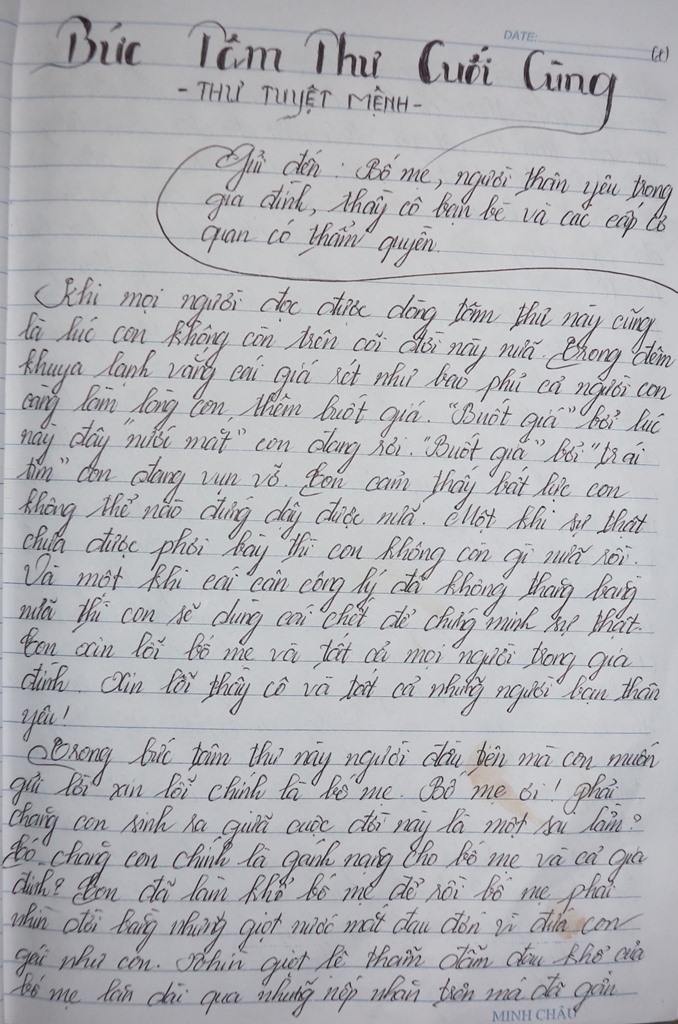 DATE:
(1)
Bức Tâm Thư Cuối Cùng
- THƯ TUYỆT MỆNH -
Gửi đến : Bố mẹ, người thân yêu trong
gia đình, thầy cô bạn bè và các cấp cơ
quan có thẩm quyền.
Khi mọi người đọc được dòng tâm thư này cũng
là lúc con không còn trên cõi đời này nữa. Trong đêm
khuya lạnh vắng cái giá rét như bao phủ cả người con
càng làm lòng con thêm buốt giá. "Buốt giá" bởi lúc
này đây "nước mắt" con đang rơi. "Buốt giá" bởi "trái
tim" con đang vụn vỡ. Con cảm thấy bất lực con
không thể nào đứng dậy được nữa. Một khi sự thật
chưa được phơi bày thì con không còn gì nữa rồi.
Và một khi cái cân công lý đã không thăng bằng
nữa thì con sẽ dùng cái chết để chứng minh sự thật.
Con xin lỗi bố mẹ và tất cả mọi người trong gia
đình. Xin lỗi thầy cô và tất cả những người bạn thân
yêu!
Trong bức tâm thư này người đầu tiên mà con muốn
gửi lời xin lỗi chính là bố mẹ. Bố mẹ ơi! phải
chăng con sinh ra giữa cuộc đời này là một sai lầm?
Có chăng con chính là gánh nặng cho bố mẹ và cả gia
đình? Con đã làm khổ bố mẹ để rồi bố mẹ phải
nhìn đời bằng những giọt nước mắt đau đớn vì đứa con
gái như con. Nhìn giọt lệ thấm đẫm đau khổ của
bố mẹ lăn dài qua những nếp nhăn trên má đã gần
MINH CHÂU